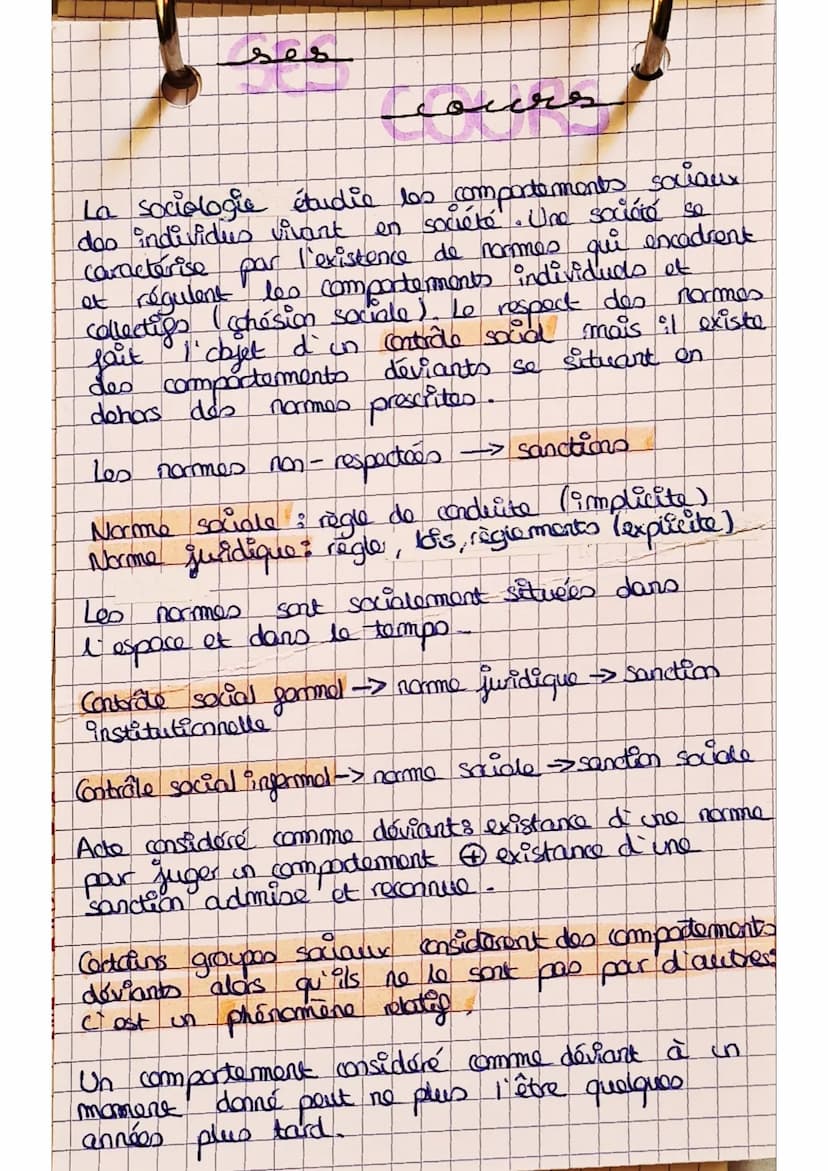 SES
ses
COURS
cours
La sociologie étudie les comportements sociaux
des individus vivant en société. Une société se
caractérise par l'existence de normes qui encadrent
et régulent les comportements individuels et
collectifs (cohésion sociale). Le respect des normes
fait l'objet d'un contrôle social mais il existe
des comportements déviants se situant en
dehors des normes prescrites.
Les normes non-respectées → sanctions
Norme sociale : règle de conduite (implicite)
Norme juridique : règle, lois, règlements (explicite)
Les normes sont socialement situées dans
l'espace et dans le temps.
Contrôle social formel → norme juridique → sanction
institutionnelle
Contrôle social informel → norme sociale → sanction sociale
Acte considéré comme déviant : existance d'une norme
par juger un comportement ⊕ existance d'une
sanction admise et reconnue.
Certains groupes sociaux considèrent des comportements
déviants alors qu'ils ne le sont pas par d'autres
c'est un phénomène relatif.
Un comportement considéré comme déviant à un
moment donné peut ne plus l'être quelques
années plus tard.